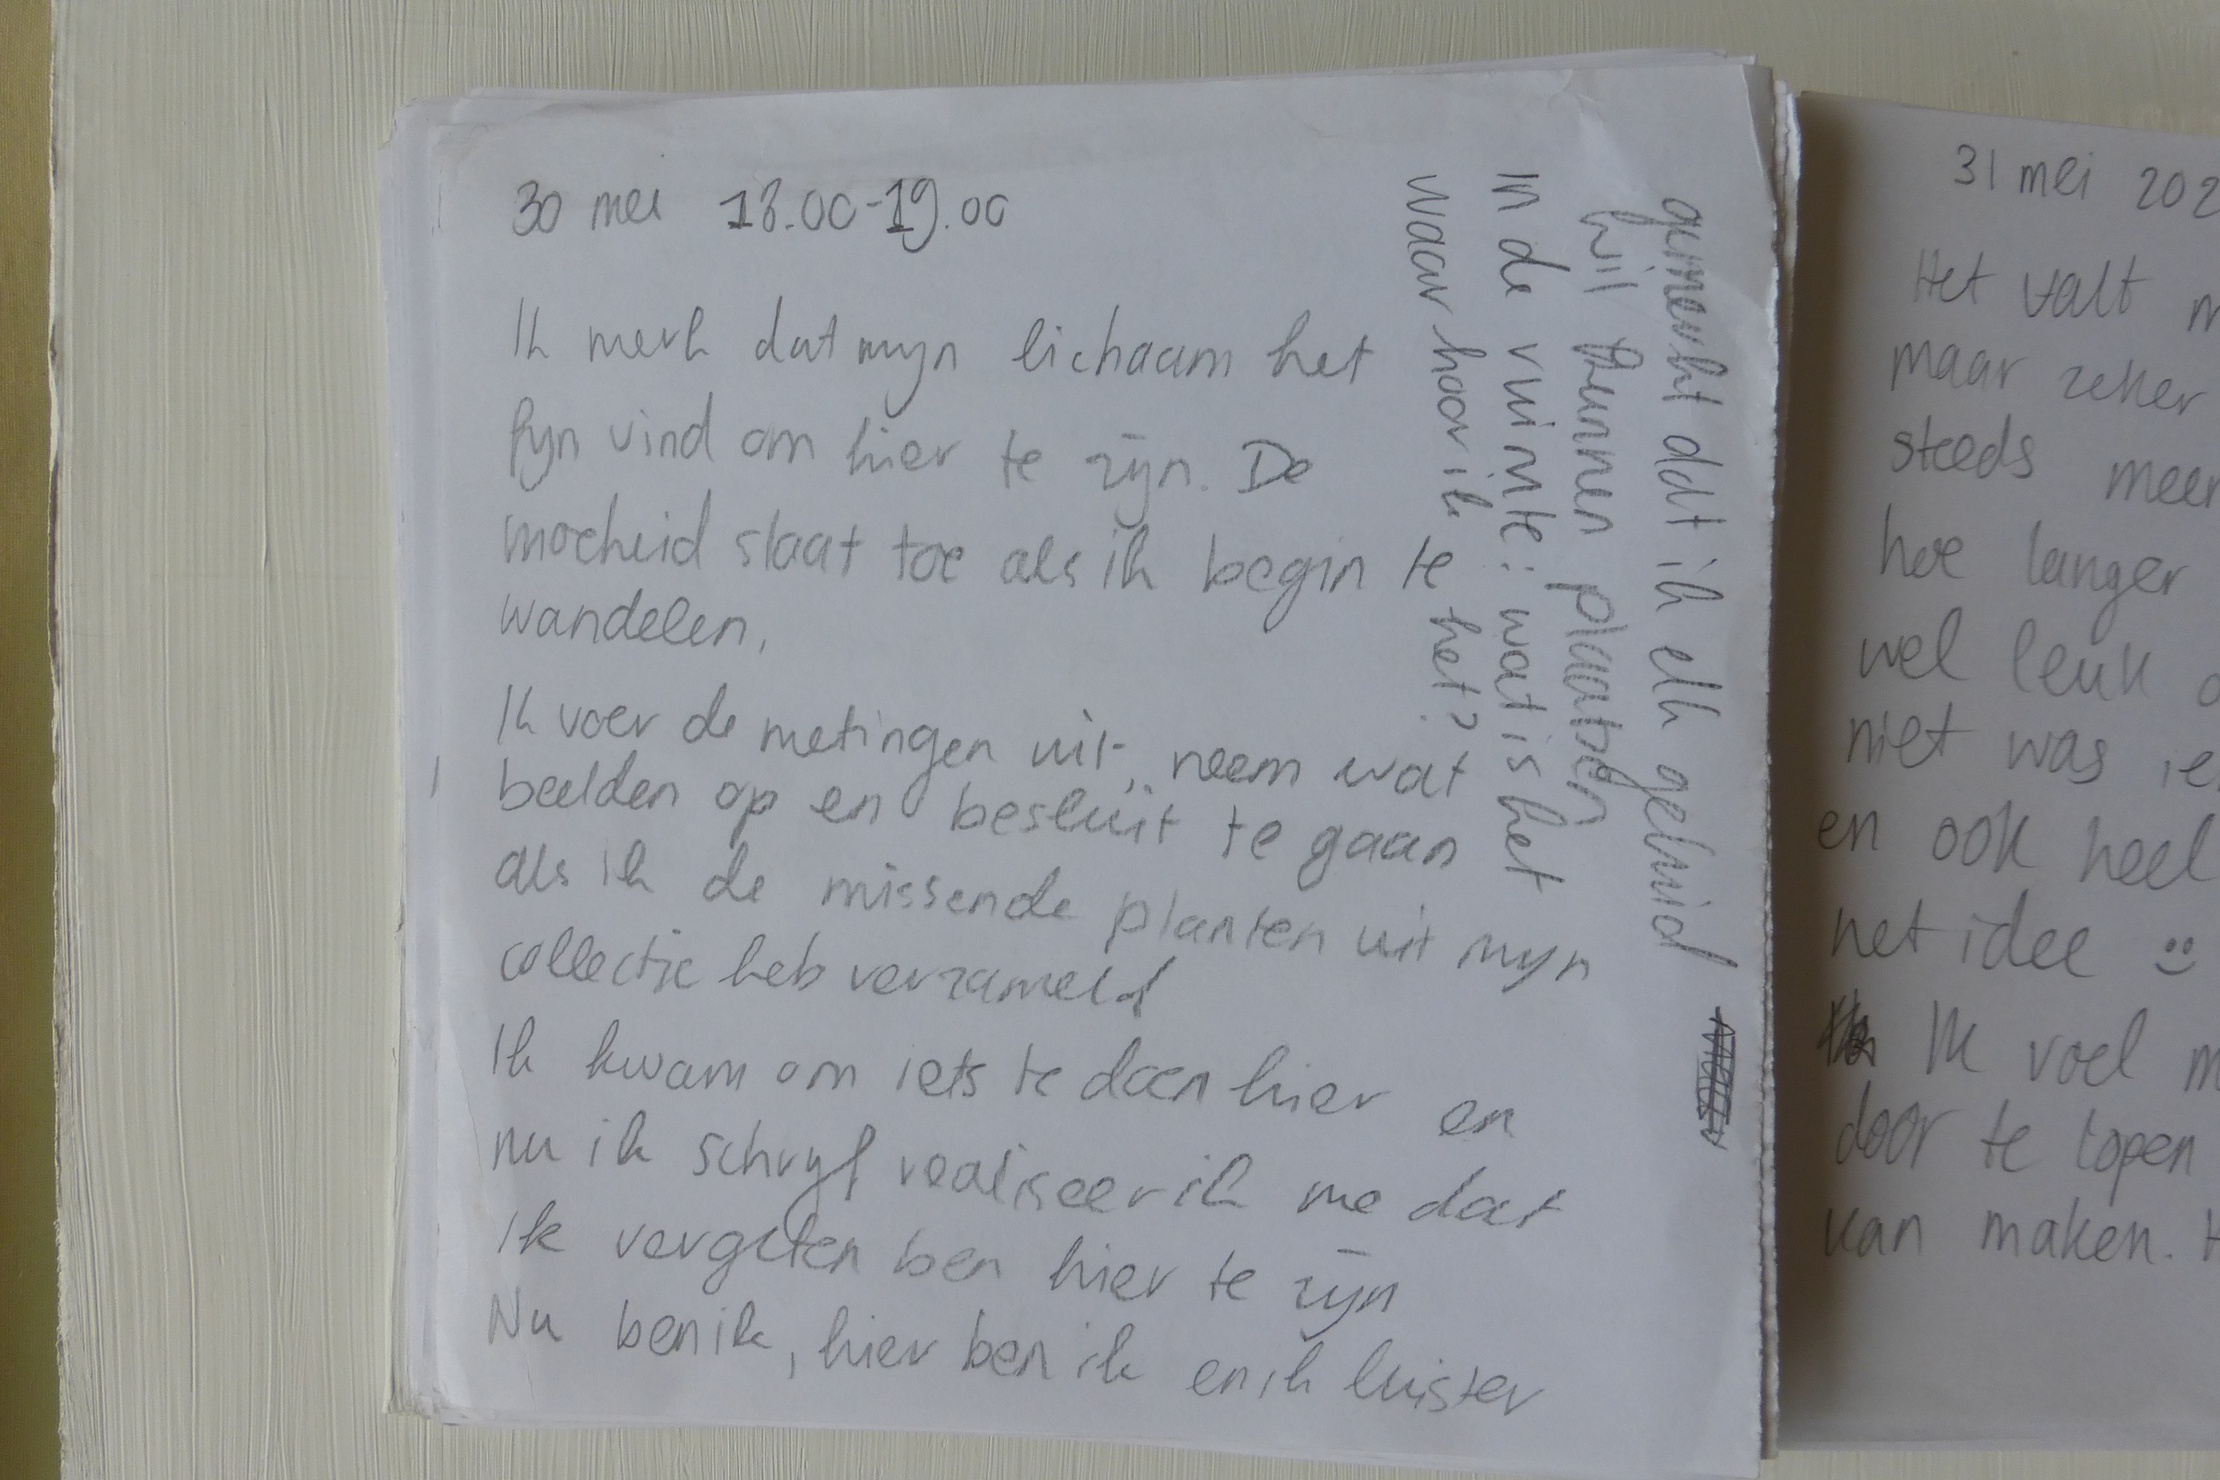 30 mei 18.00-19.00
Ik merk dat mijn lichaam het
fijn vind om hier te zijn. De
moeheid slaat toe als ik begin te
wandelen,
Ik voer de metingen uit, neem wat
beelden op en besluit te gaan
als ik de missende planten uit mijn
collectie heb verzameld
Ik kwam om iets te doen hier en
nu ik schrijf realiseer ik me dat
ik vergeten ben hier te zijn
Nu ben ik, hier ben ik en ik luister
gemerkt dat ik elk geluid
wil kunnen plaatsen
in de ruimte: wat is het
waar hoor ik het?
31 mei 202
Het valt m
maar zeker
steeds meer
hoe langer
wel leuk
niet was ie
en ook heel
het idee :)
Ik voel m
door te lopen
kan maken. H